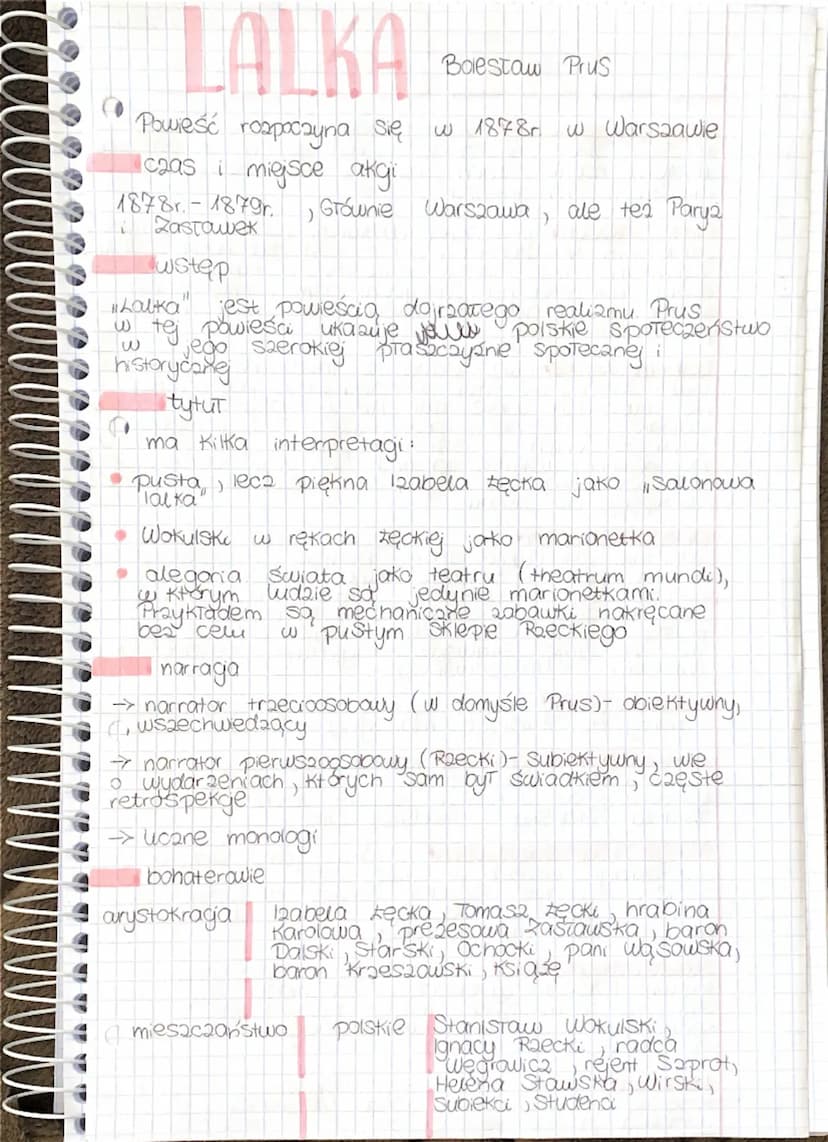 LALKA Bolesław Prus
Powieść rozpoczyna się w 1878r. w Warszawie
czas i miejsce akcji
1878r. - 1879r. , Głównie Warszawa, ale też Paryż
i Zasławek
wstęp
"Lalka" jest powieścią dojrzałego realizmu. Prus
w tej powieści ukazuje polskie społeczeństwo
w jego szerokiej płaszczyźnie społecznej i
historycznej
tytuł
ma kilka interpretacji:
• pusta, lecz piękna Izabela Łęcka jako "salonowa
lalka"
• Wokulski w rękach Łęckiej jako marionetka
• alegoria świata jako teatru (theatrum mundi),
w którym ludzie są jedynie marionetkami.
Przykładem są mechaniczne zabawki nakręcane
bez celu w pustym sklepie Rzeckiego
narracja
→ narrator trzecioosobowy (w domyśle Prus) - obiektywny,
wszechwiedzący
→ narrator pierwszoosobowy (Rzecki) - subiektywny, wie
o wydarzeniach, których sam był świadkiem, częste
retrospekcje
→ liczne monologi
bohaterowie
arystokracja | Izabela Łęcka, Tomasz Łęcki, hrabina
Karolowa, prezesowa Zasławska, baron
Dalski, Starski, Ochocki, pani Wąsowska,
baron Krzeszowski, Książę
mieszczaństwo | polskie | Stanisław Wokulski,
Ignacy Rzecki, radca
Węgrowicz, rejent Szprot,
Helena Stawska, Wirski,
Subiekci, Studenci